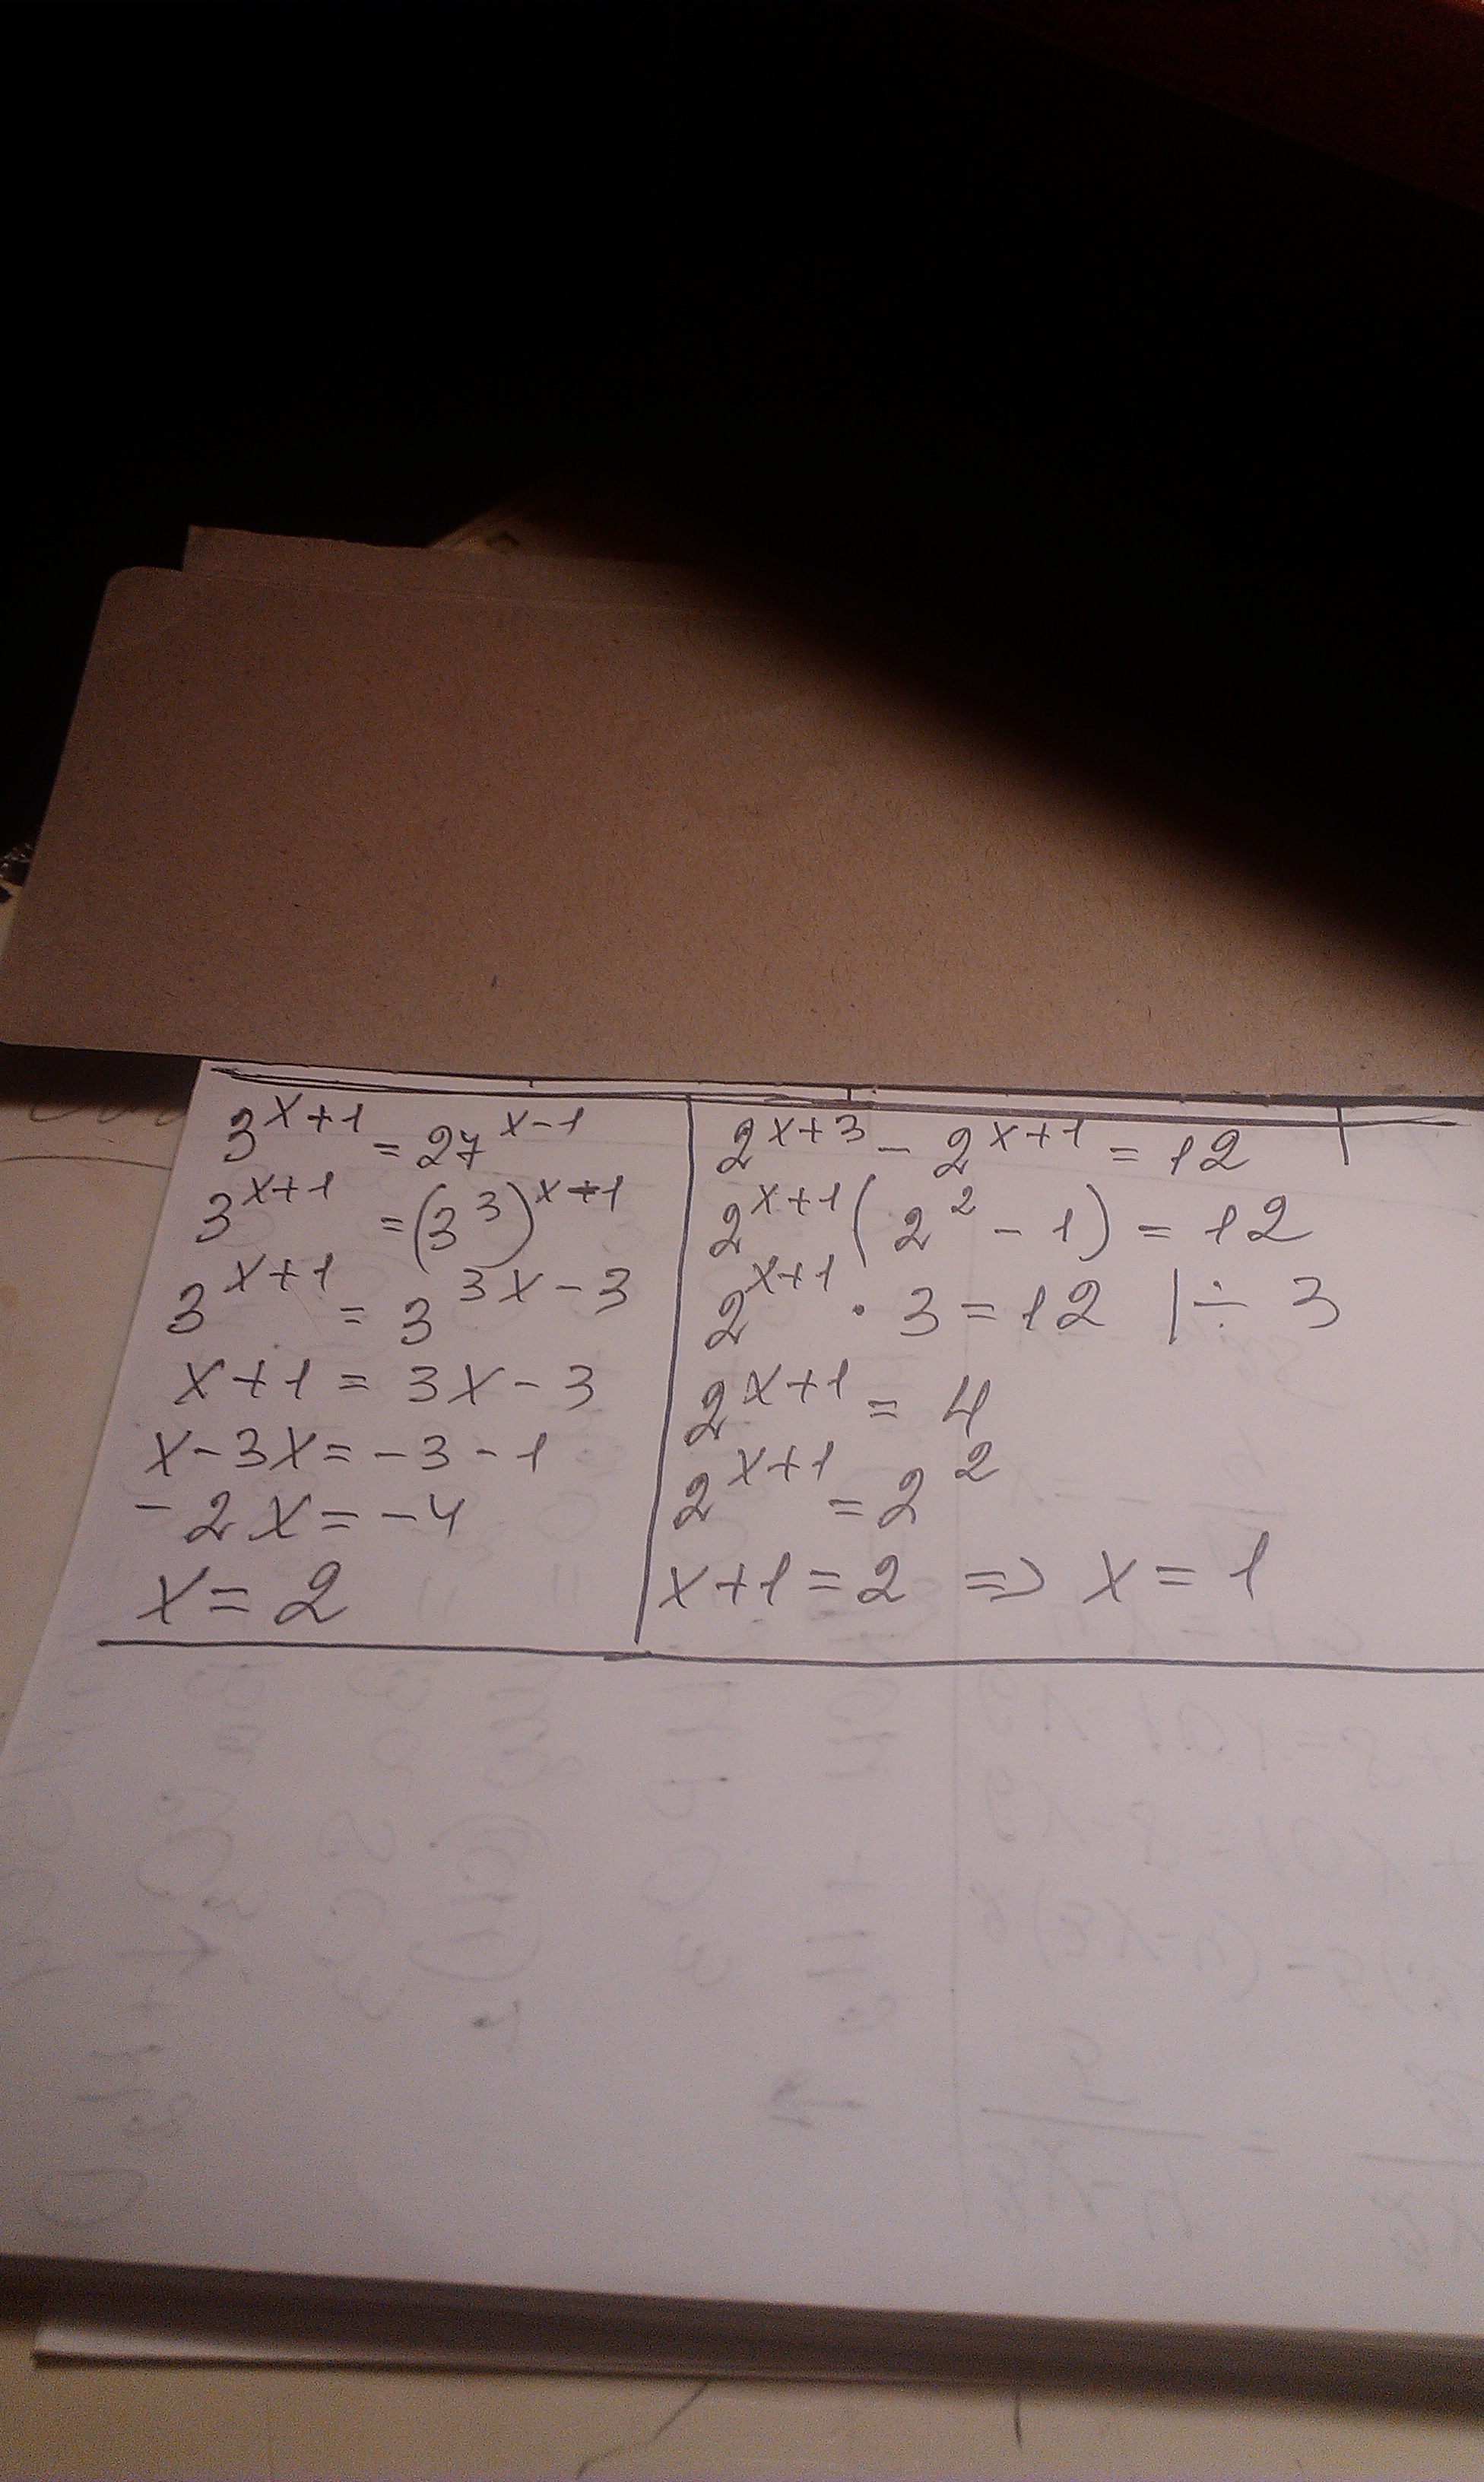 3^{x+1} = 27^{x-1}
3^{x+1} = (3^3)^{x-1}
3^{x+1} = 3^{3x-3}
x+1 = 3x-3
x-3x = -3-1
-2x = -4
x = 2
2^{x+3} - 2^{x+1} = 12
2^{x+1}(2^2 - 1) = 12
2^{x+1} · 3 = 12 |÷ 3
2^{x+1} = 4
2^{x+1} = 2^2
x+1 = 2 => x = 1